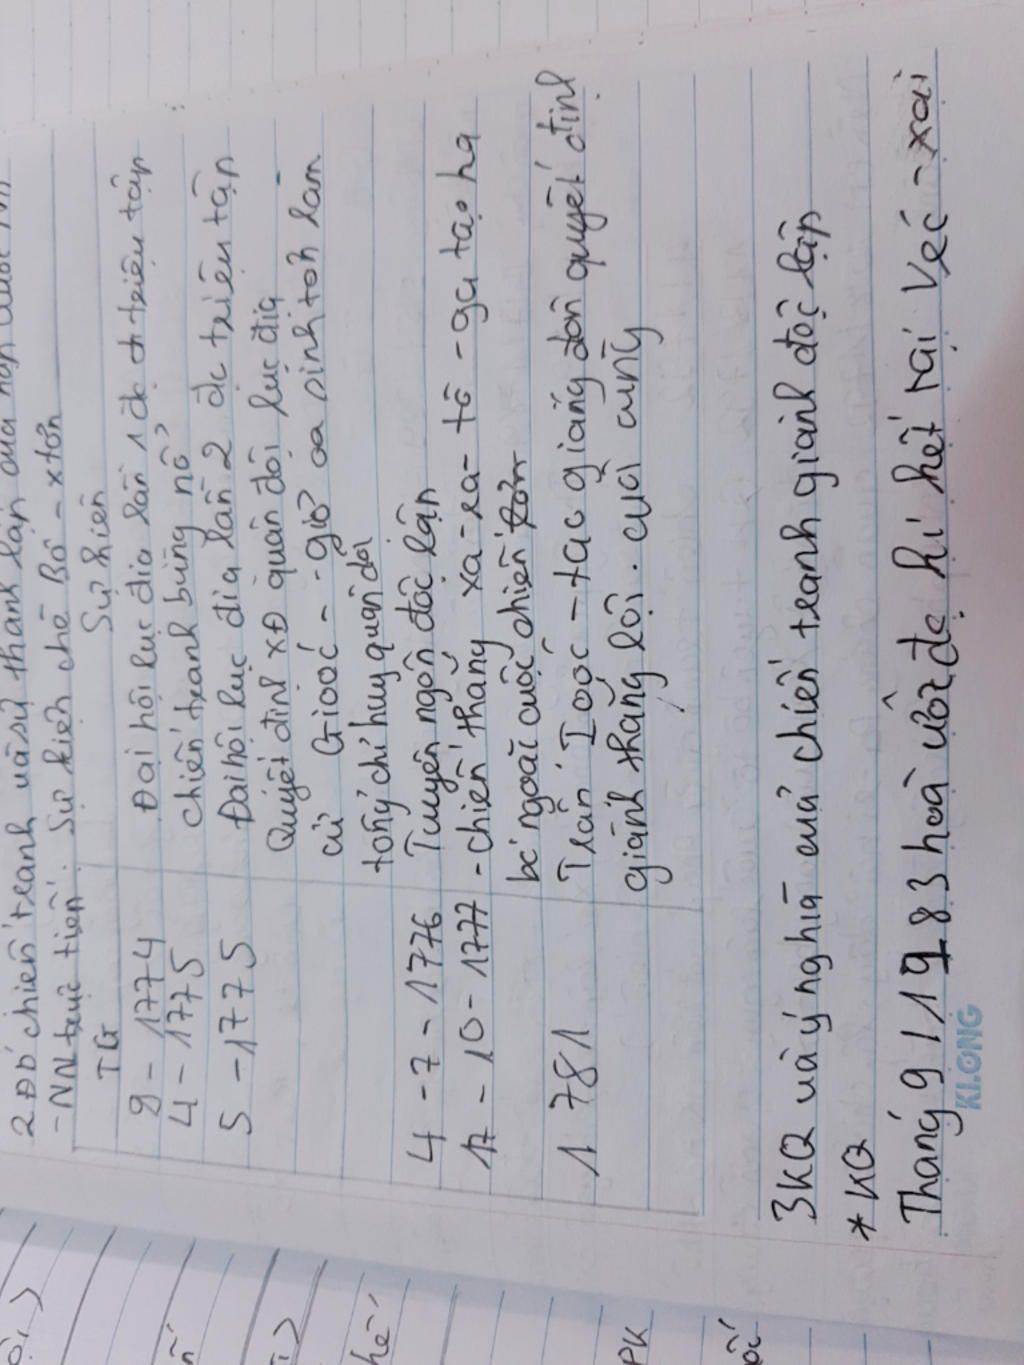 2 Đb chiến tranh và sự thành lập của
- NN trực tiếp: Sự kiện chè Bô - xtơn
TG Sự kiện
9 - 1774 Đại hội lục địa lần 1 đc triệu tập
4 - 1775 chiến tranh bùng nổ
5 - 1775 Đại hội lục địa lần 2 đc triệu tập
Quyết định XĐ quân đội lục địa
cử Gioóc - giơ oa sinh tơn làm
tổng chỉ huy quân đội
4 - 7 - 1776 Tuyên ngôn độc lập
17 - 10 - 1777 - chiến thắng xa-ra-tô-ga tạo ra
bc ngoài cuộc chiến
1781 Trận I oóc - tao giáng đòn quyết định
giành thắng lợi. cuối cùng
3 KQ và ý nghĩa cuả chiến tranh giành độc lập
* KQ
Tháng 9 / 1983 hoà ước đc kí kết tại Véc - xai
KLONG
PK